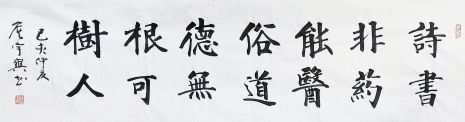 詩書
非葯
能醫
俗道
德無
根可
樹人
己亥仲夏